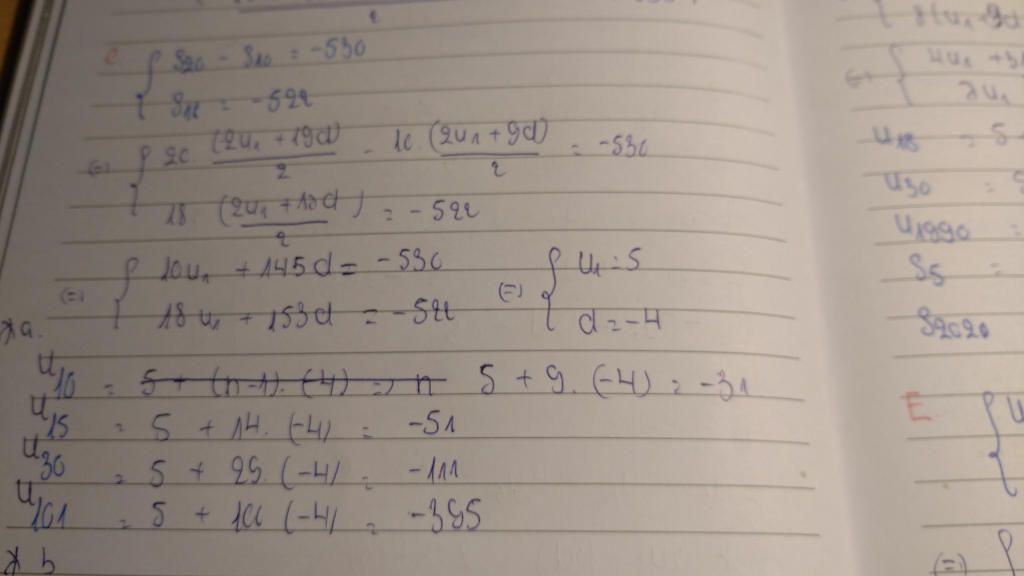 C { S20 - S10 = -530
S18 = -522
(=) { 20. (2u1 + 19d)/2 - 10. (2u1 + 9d)/2 = -530
18. (2u1 + 17d)/2 = -522
(=) { 10u1 + 145d = -530 (=) { u1 = 5
18u1 + 153d = -522 d = -4
* a.
U10 = 5 + (n-1). (-4) => n 5 + 9. (-4) = -31
U15 = 5 + 14. (-4) = -51
U30 = 5 + 29. (-4) = -111
U101 = 5 + 100 (-4) = -395
* b
(=) { 4u1 +
2u1
u15 = 5 -
u30 =
u1990 =
S5 =
S2020
E. { U
(=) {